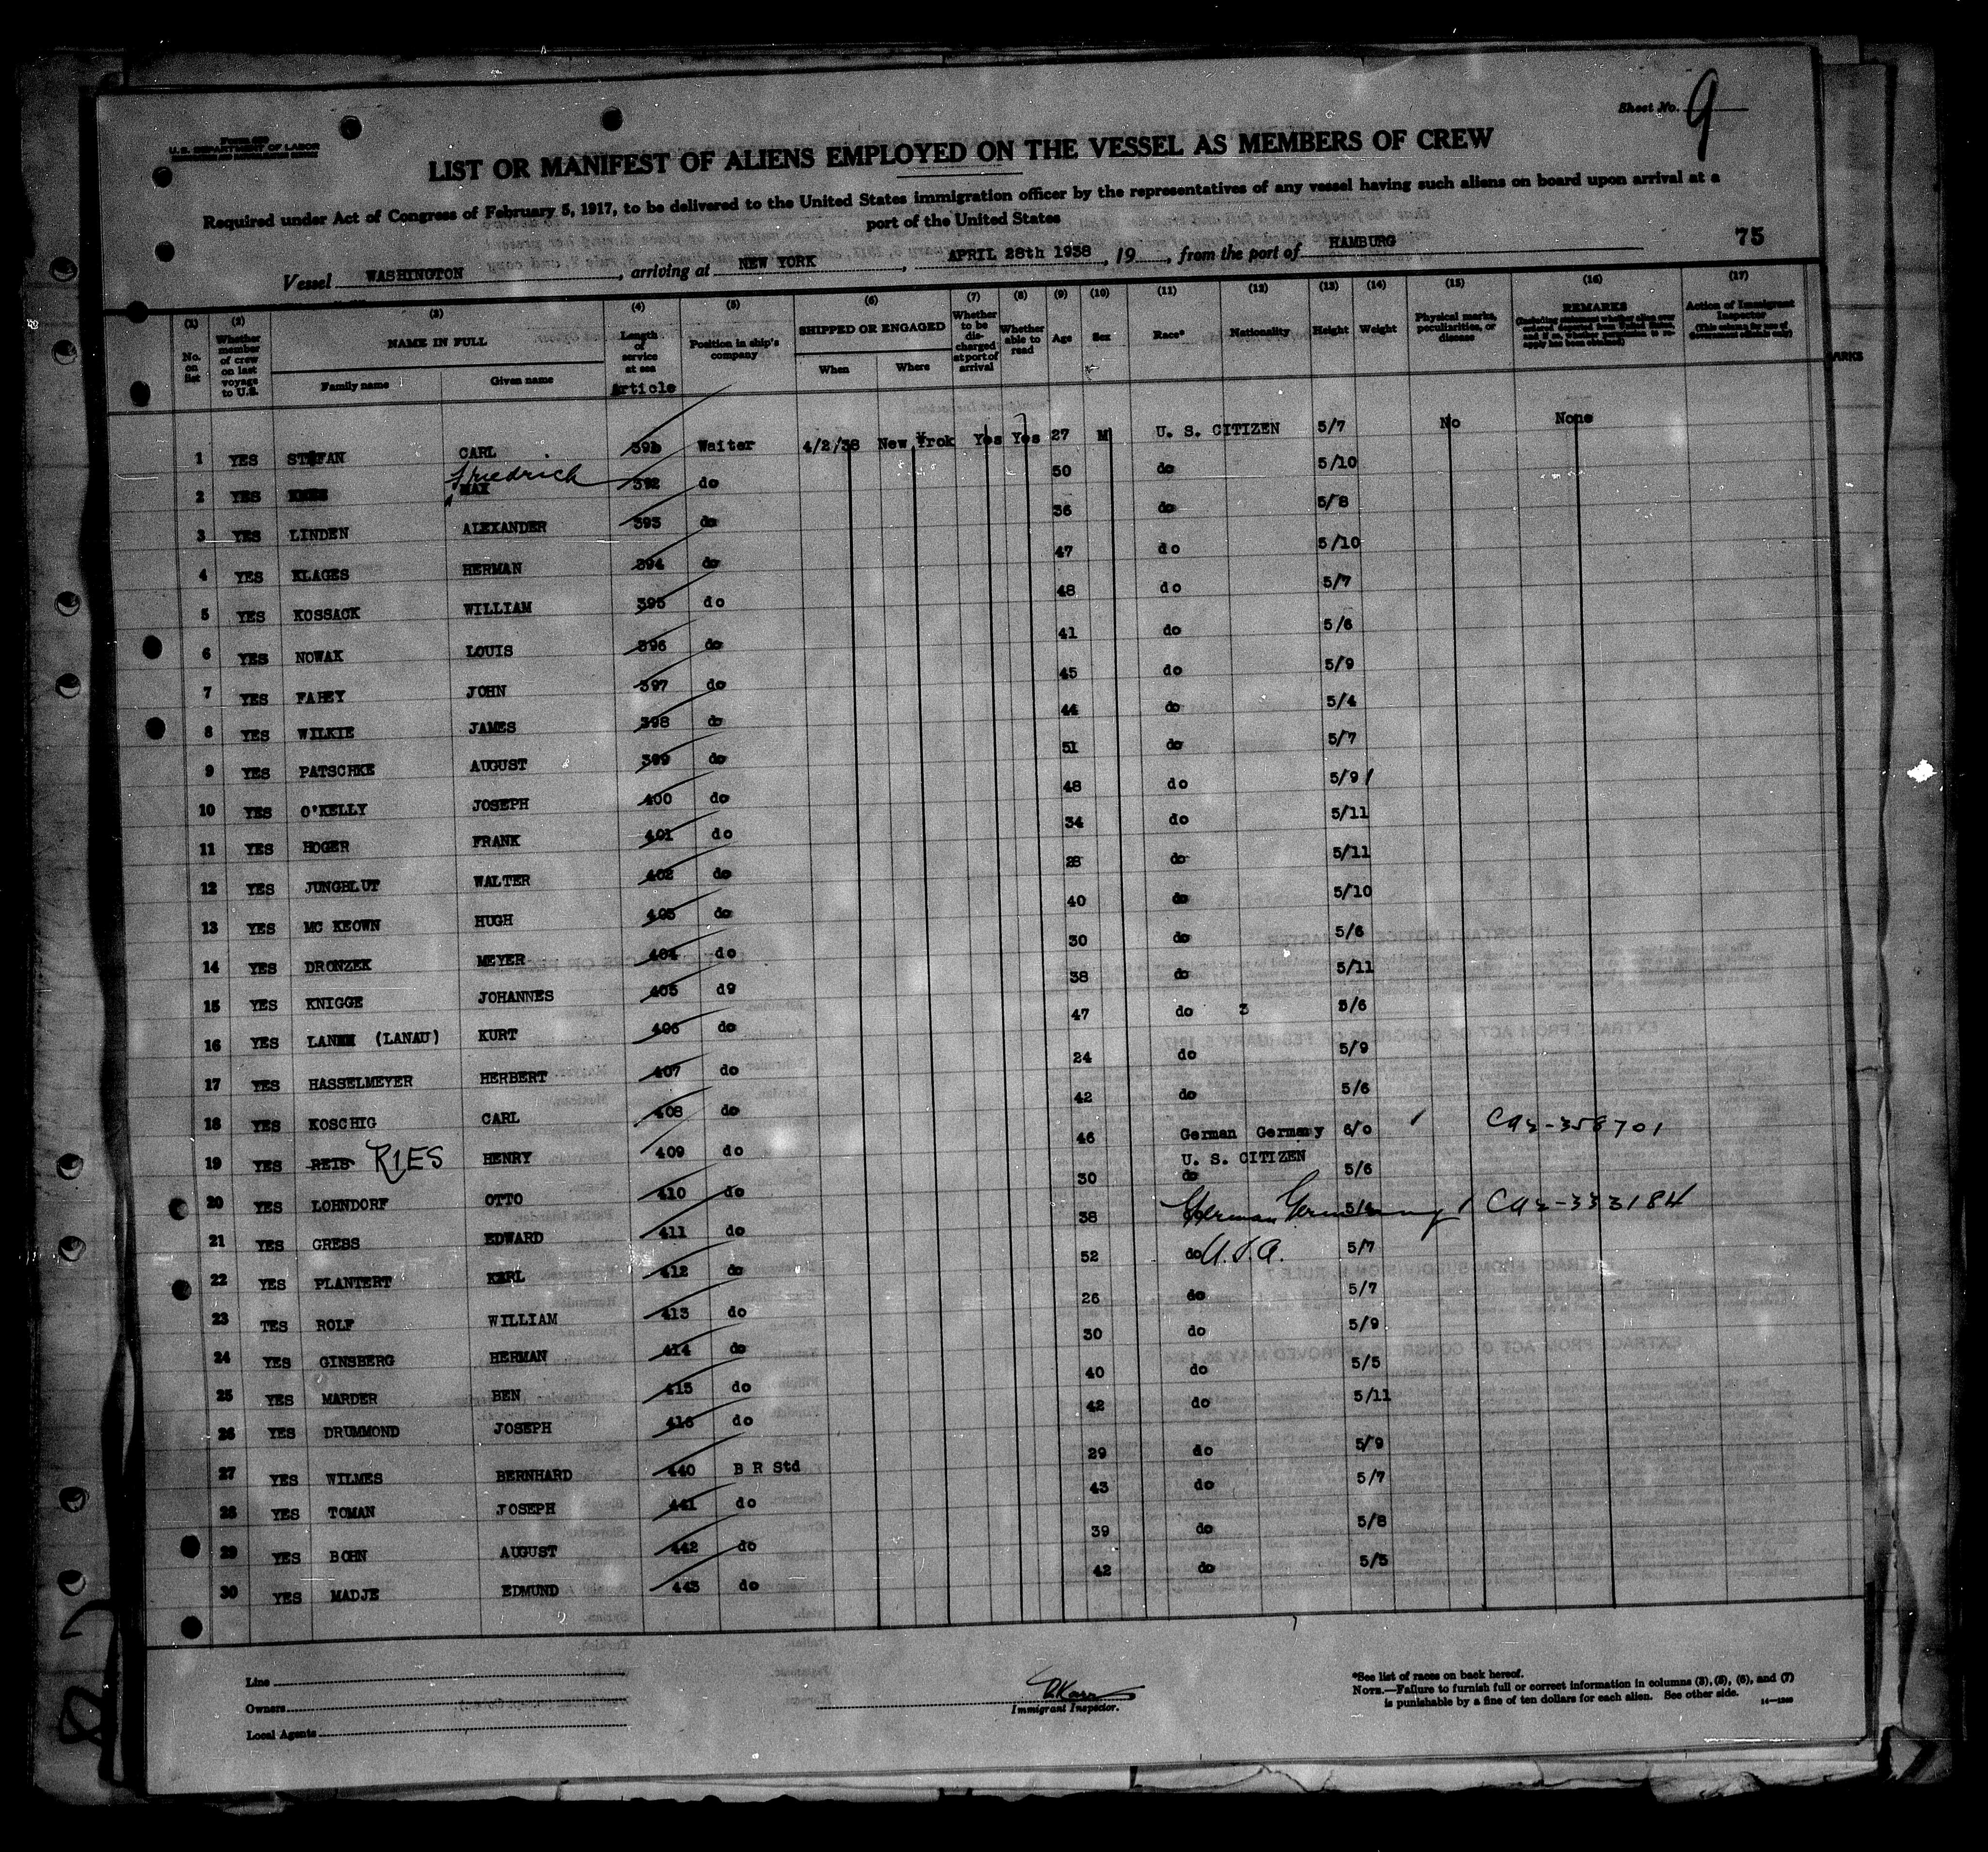 Sheet No. 9
U.S. DEPARTMENT OF LABOR
LIST OR MANIFEST OF ALIENS EMPLOYED ON THE VESSEL AS MEMBERS OF CREW
Required under Act of Congress of February 5, 1917, to be delivered to the United States immigration officer by the representatives of any vessel having such aliens on board upon arrival at a
port of the United States
75
Vessel WASHINGTON, arriving at NEW YORK, APRIL 28th 1938, 19, from the port of HAMBURG
(1) (2) (3) (4) (5) (6) (7) (8) (9) (10) (11) (12) (13) (14) (15) (16) (17)
No. on list
Whether member of crew on last voyage to U.S.
NAME IN FULL
Family name Given name
Length of service at sea
Article
Position in ship's company
SHIPPED OR ENGAGED
When Where
Whether to be discharged at port of arrival
Whether able to read
Age Sex Race* Nationality Height Weight
Physical marks, peculiarities, or disease
REMARKS
Action of Immigrant Inspector
(This column for use of Government officials only)
1 YES STEFAN CARL 391 Waiter 4/2/38 New Yrok Yes Yes 27 M U. S. CITIZEN 5/7 No None
2 YES Friedrich MAX 392 do 50 do 5/10
3 YES LINDEN ALEXANDER 393 do 36 do 5/8
4 YES KLAGES HERMAN 394 do 47 do 5/10
5 YES KOSSACK WILLIAM 395 do 48 do 5/7
6 YES NOWAK LOUIS 396 do 41 do 5/6
7 YES FAHEY JOHN 397 do 45 do 5/9
8 YES WILKIE JAMES 398 do 44 do 5/4
9 YES PATSCHKE AUGUST 399 do 51 do 5/7
10 YES O'KELLY JOSEPH 400 do 48 do 5/9
11 YES HOGER FRANK 401 do 34 do 5/11
12 YES JUNGBLUT WALTER 402 do 28 do 5/11
13 YES MC KEOWN HUGH 403 do 40 do 5/10
14 YES DRONZEK MEYER 404 do 30 do 5/6
15 YES KNIGGE JOHANNES 405 d9 38 do 5/11
16 YES (LANAU) KURT 406 do 47 do 3 5/6
17 YES HASSELMEYER HERBERT 407 do 24 do 5/9
18 YES KOSCHIG CARL 408 do 42 do 5/6
19 YES REIS RIES HENRY 409 do 46 German Germany 6/0 CA2-358701
20 YES LOHNDORF OTTO 410 do 30 U. S. CITIZEN do 5/6
21 YES GRESS EDWARD 411 do 38 do German Germany CA2-333184
22 YES PLANTERT KARL 412 do 52 do U.S.A. 5/7
23 TES ROLF WILLIAM 413 do 26 do 5/7
24 YES GINSBERG HERMAN 414 do 30 do 5/9
25 YES MARDER BEN 415 do 40 do 5/5
26 YES DRUMMOND JOSEPH 416 do 42 do 5/11
27 YES WILMES BERNHARD 440 B R Std 29 do 5/9
28 YES TOMAN JOSEPH 441 do 43 do 5/7
29 YES BOHN AUGUST 442 do 39 do 5/8
30 YES MADJE EDMUND 443 do 42 do 5/5
Line
Owners
Local Agents
Immigrant Inspector.
*See list of races on back hereof.
NOTE.—Failure to furnish full or correct information in columns (3), (5), (6), and (7)
is punishable by a fine of ten dollars for each alien. See other side.